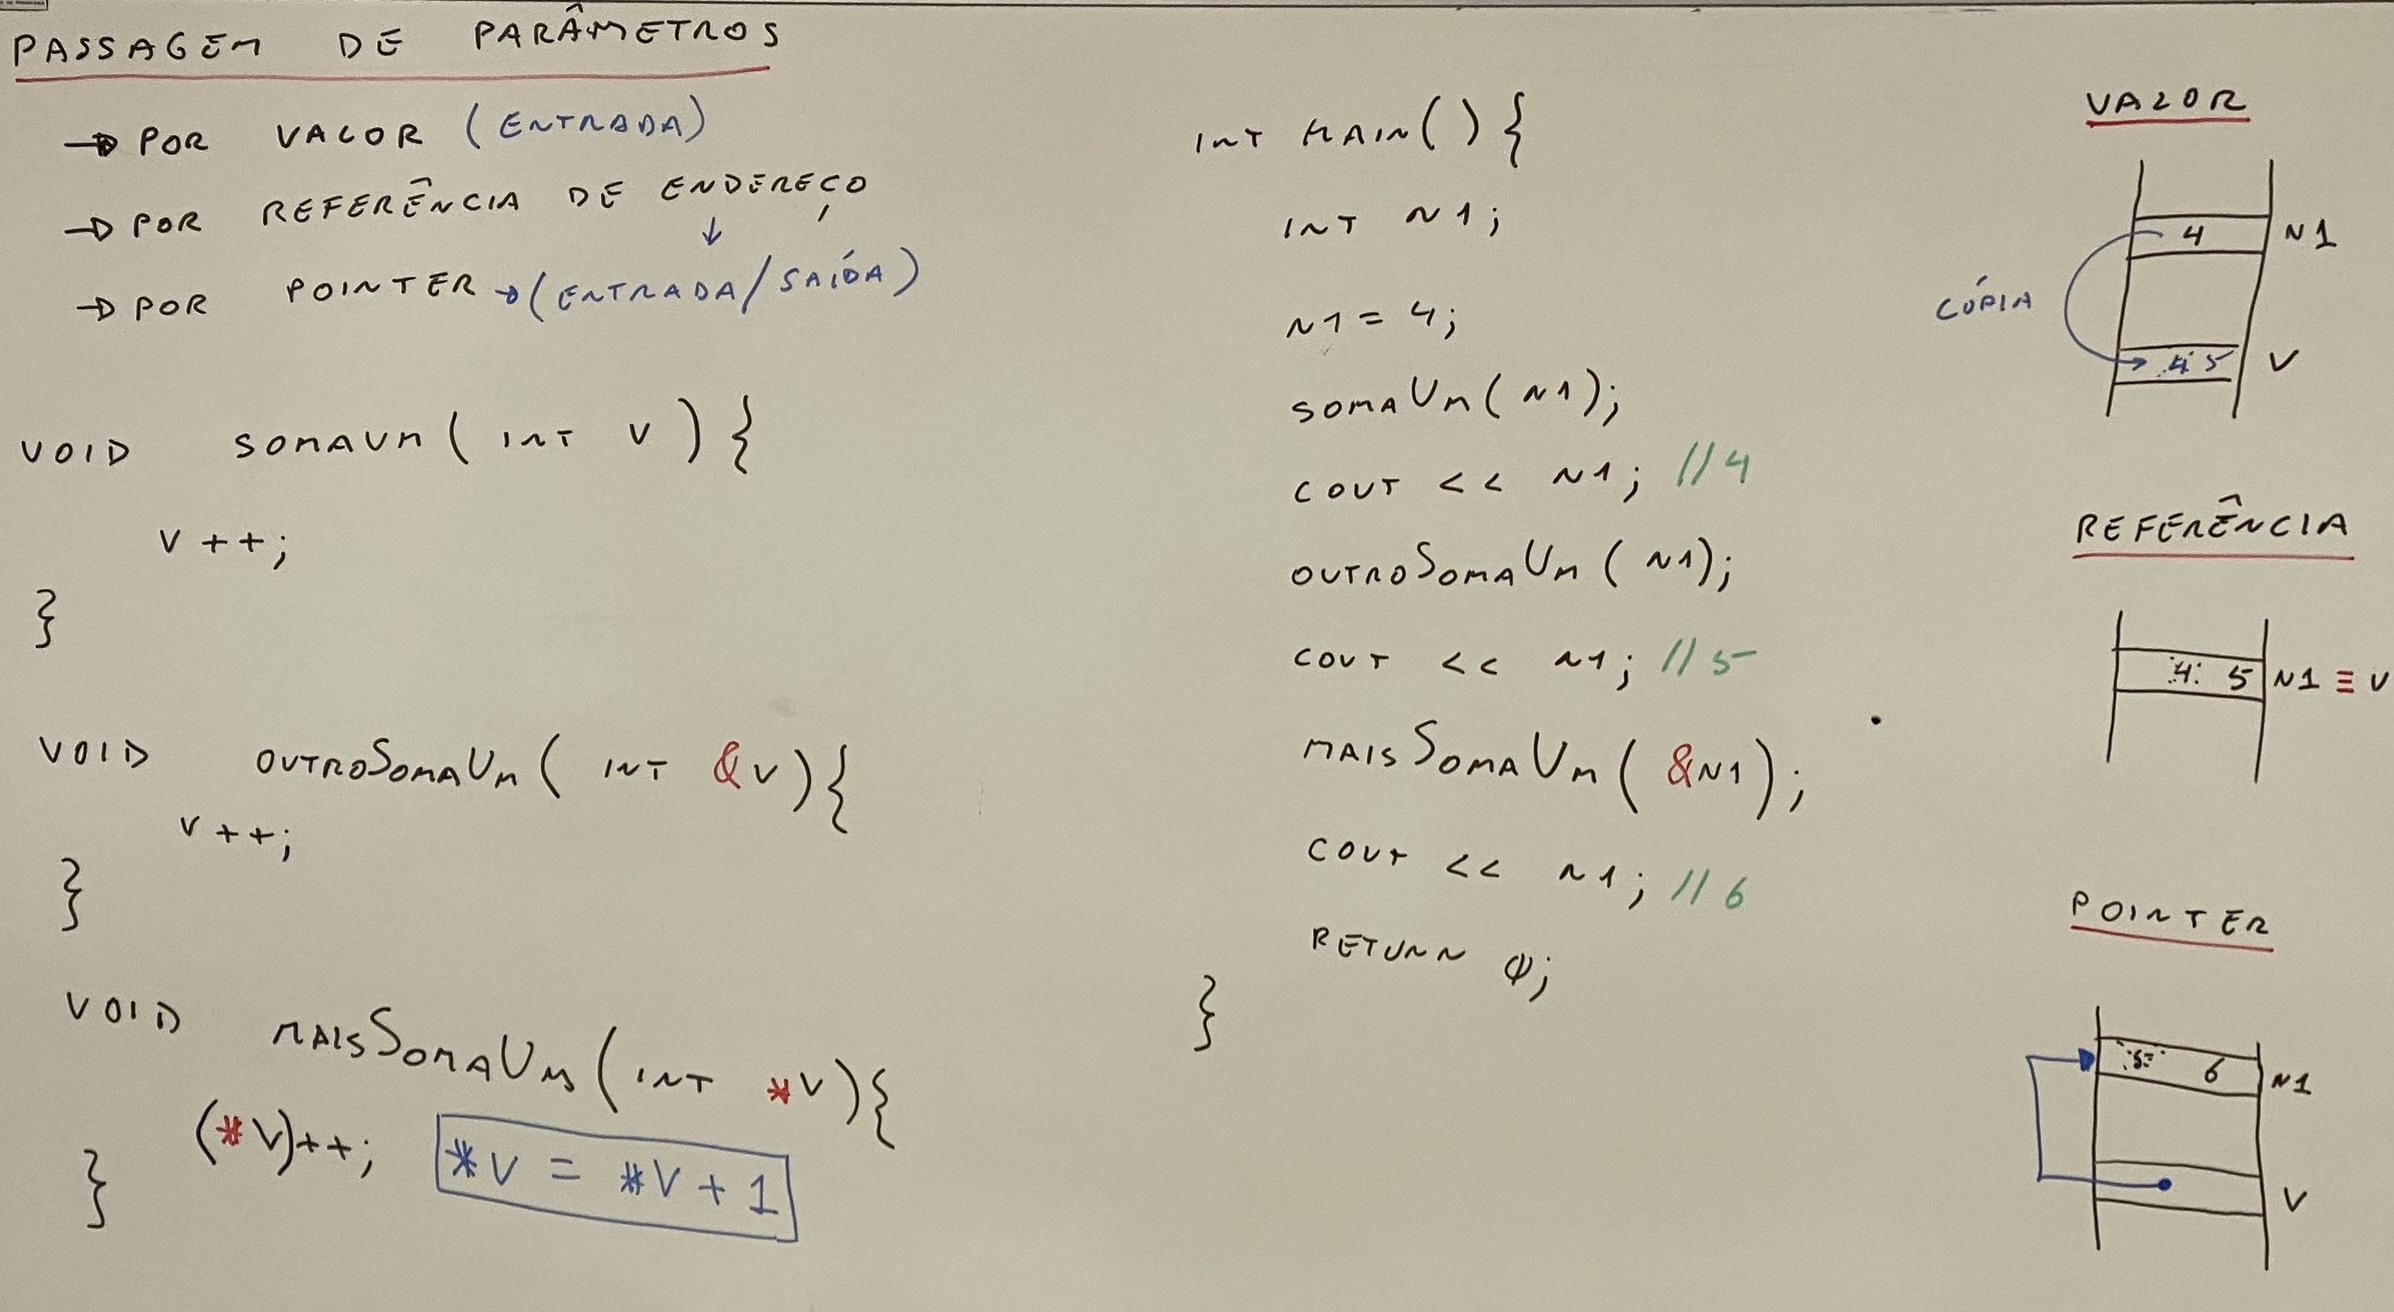 PASSAGEM DE PARÂMETROS
→ POR VALOR (ENTRADA)
→ POR REFERÊNCIA DE ENDEREÇO
↓
→ POR POINTER → (ENTRADA/SAÍDA)
VOID SOMAUM ( INT V ) {
V ++;
}
VOID OUTROSOMAUM ( INT &V){
V ++;
}
VOID MAISSOMAUM (INT *V){
(*V)++; *V = *V + 1
}
INT MAIN() {
INT N1;
N1 = 4;
SOMAUM( N1);
COUT << N1; //4
OUTROSOMAUM ( N1);
COUT << N1; //5
MAISSOMAUM ( &N1 );
COUT << N1; //6
RETURN 0;
}
VALOR
4 N1
CÓPIA
4 5 V
REFERÊNCIA
4 5 N1 ≡ V
POINTER
5 6 N1
V